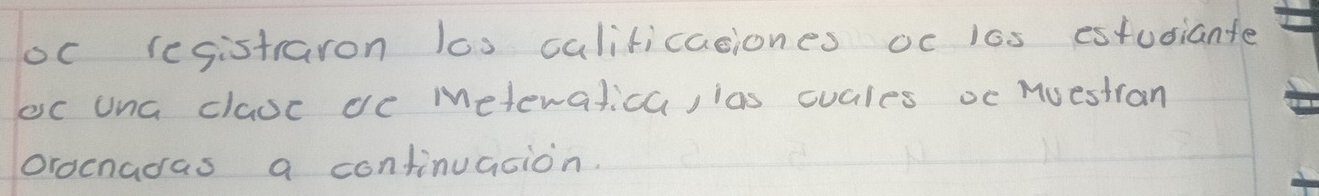 se registraron las calificaciones de los estudiante
de una clase de Metematica, las cuales se Muestran
ordenadas a continuación.